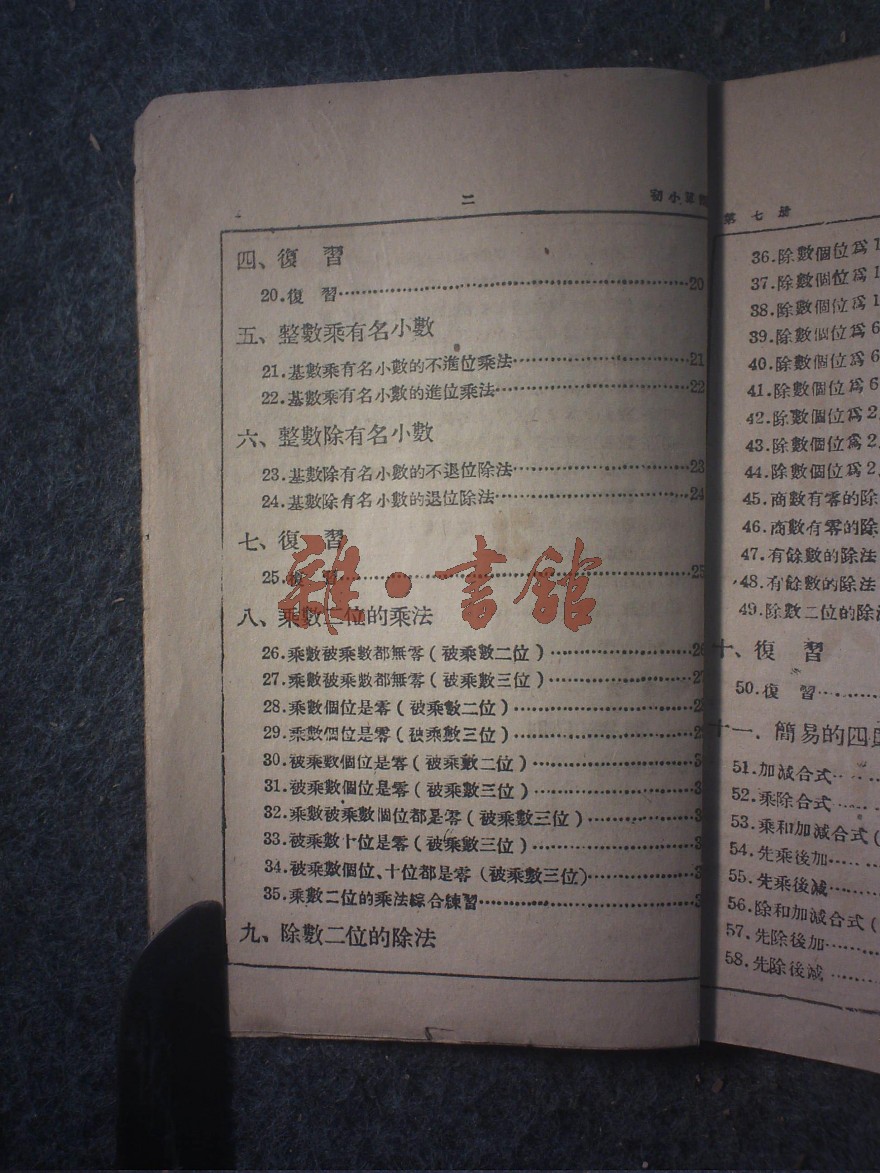 二 初小算術
四、復 習
20.復 習……20
五、整數乘有名小數
21.基數乘有名小數的不進位乘法……21
22.基數乘有名小數的進位乘法……22
六、整數除有名小數
23.基數除有名小數的不退位除法……23
24.基數除有名小數的退位除法……24
七、復 習
25.復 習……25
八、乘數二位的乘法
26.乘數被乘數都無零(被乘數二位)……26
27.乘數被乘數都無零(被乘數三位)……27
28.乘數個位是零(被乘數二位)……2
29.乘數個位是零(被乘數三位)……2
30.被乘數個位是零(被乘數二位)……3
31.被乘數個位是零(被乘數三位)……3
32.乘數被乘數個位都是零(被乘數三位)……3
33.被乘數十位是零(被乘數三位)……3
34.被乘數個位、十位都是零(被乘數三位)……3
35.乘數二位的乘法綜合練習……3
九、除數二位的除法
雜·書館
第七册
36.除數個位爲1
37.除數個位爲1
38.除數個位爲1
39.除數個位爲6
40.除數個位爲6
41.除數個位爲6
42.除數個位爲2,
43.除數個位爲2,
44.除數個位爲2,
45.商數有零的除
46.商數有零的除
47.有餘數的除法
48.有餘數的除法
49.除數二位的除法
十、復 習
50.復 習……
十一.簡易的四
51.加減合式……
52.乘除合式……
53.乘和加減合式(
54.先乘後加……
55.先乘後減……
56.除和加減合式(
57.先除後加……
58.先除後減……